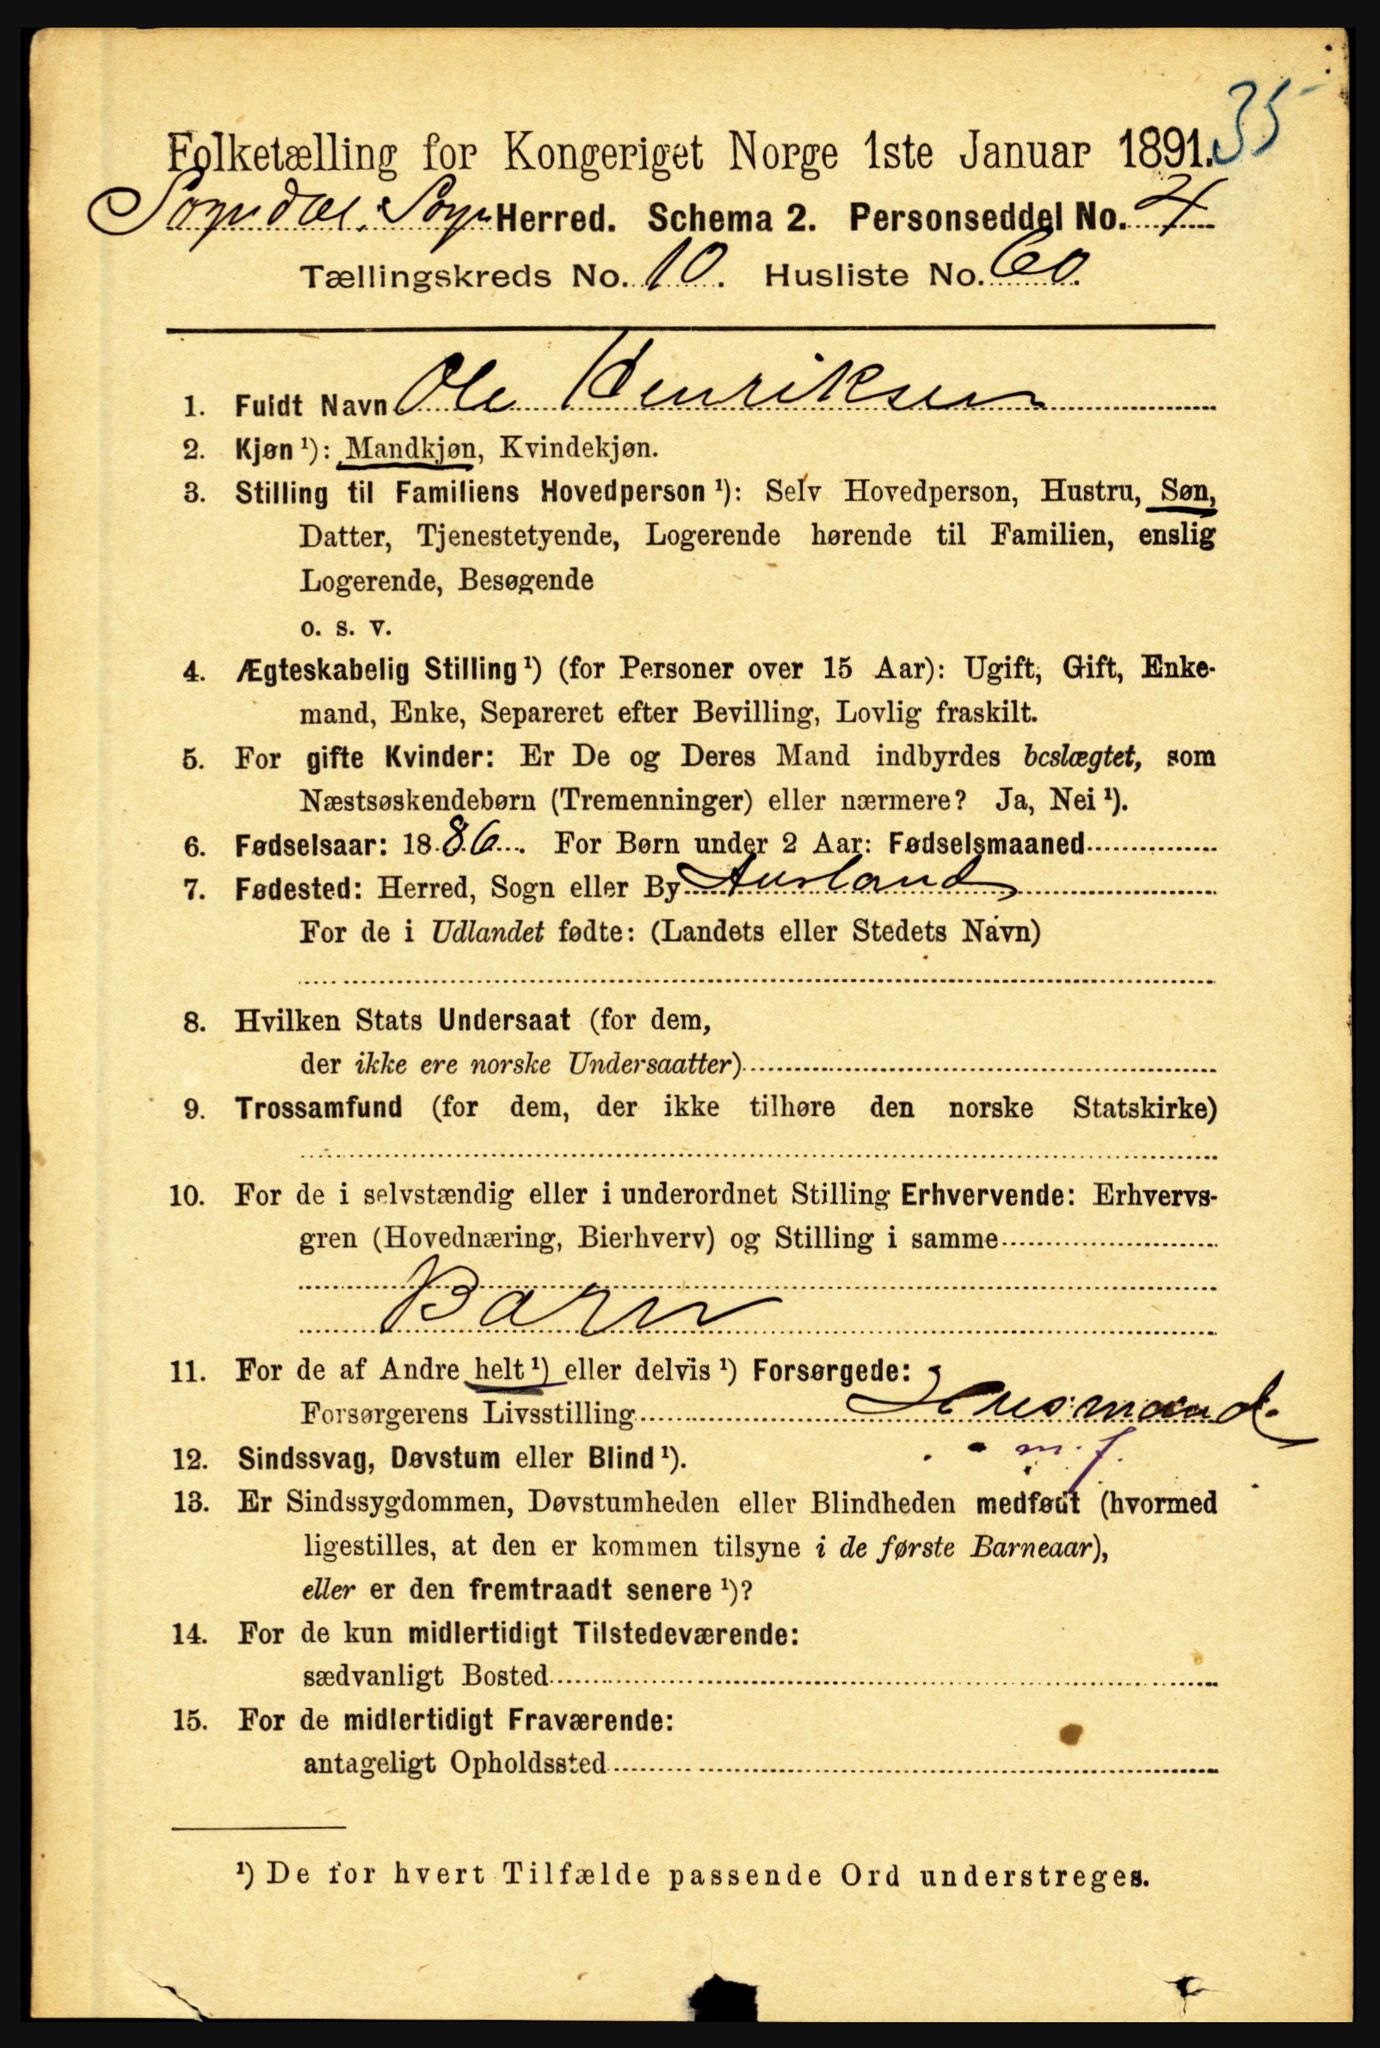 35
Folketælling for Kongeriget Norge 1ste Januar 1891.
Sogndal, Sogn Herred. Schema 2. Personseddel No. 4
Tællingskreds No. 10. Husliste No. 60.
1. Fuldt Navn Ole Henriksen
2. Kjøn ¹): Mandkjøn, Kvindekjøn.
3. Stilling til Familiens Hovedperson ¹): Selv Hovedperson, Hustru, Søn,
Datter, Tjenestetyende, Logerende hørende til Familien, enslig
Logerende, Besøgende
o. s. v.
4. Ægteskabelig Stilling ¹) (for Personer over 15 Aar): Ugift, Gift, Enke-
mand, Enke, Separeret efter Bevilling, Lovlig fraskilt.
5. For gifte Kvinder: Er De og Deres Mand indbyrdes beslægtet, som
Næstsøskendebørn (Tremenninger) eller nærmere? Ja, Nei ¹).
6. Fødselsaar: 1886. For Børn under 2 Aar: Fødselsmaaned
7. Fødested: Herred, Sogn eller By Aurland
For de i Udlandet fødte: (Landets eller Stedets Navn)
8. Hvilken Stats Undersaat (for dem,
der ikke ere norske Undersaatter)
9. Trossamfund (for dem, der ikke tilhøre den norske Statskirke)
10. For de i selvstændig eller i underordnet Stilling Erhvervende: Erhvervs-
gren (Hovednæring, Bierhverv) og Stilling i samme
Barn
11. For de af Andre helt ¹) eller delvis ¹) Forsørgede:
Forsørgerens Livsstilling Husmand
m. f.
12. Sindssvag, Døvstum eller Blind ¹).
13. Er Sindssygdommen, Døvstumheden eller Blindheden medfødt (hvormed
ligestilles, at den er kommen tilsyne i de første Barneaar),
eller er den fremtraadt senere ¹)?
14. For de kun midlertidigt Tilstedeværende:
sædvanligt Bosted
15. For de midlertidigt Fraværende:
antageligt Opholdssted
¹) De for hvert Tilfælde passende Ord understreges.